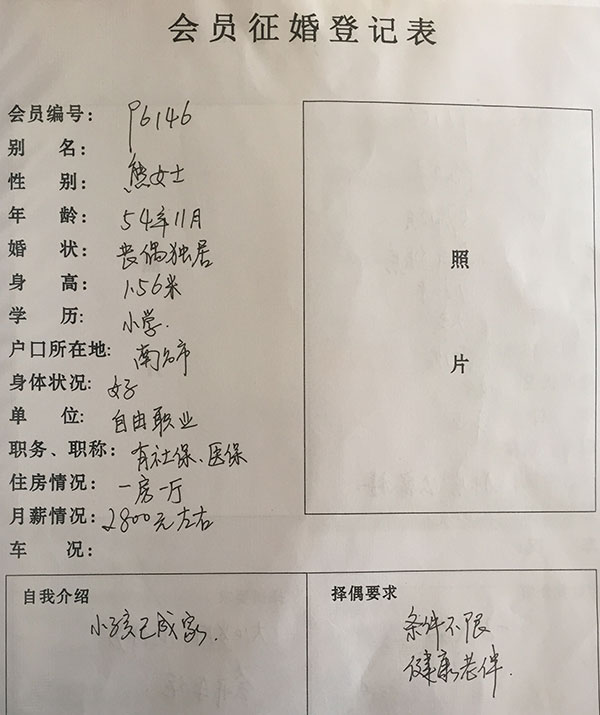 会员征婚登记表
会员编号: P6146
别 名:
性 别: 熊女士
年 龄: 54年11月
婚 状: 丧偶独居
身 高: 1.56米
学 历: 小学.
户口所在地: 南宁市
身体状况: 好
单 位: 自由职业
职务、职称: 有社保、医保
住房情况: 一房一厅
月薪情况: 2800元左右
车 况:
照
片
自我介绍
小孩已成家.
择偶要求
条件不限
健康老伴.